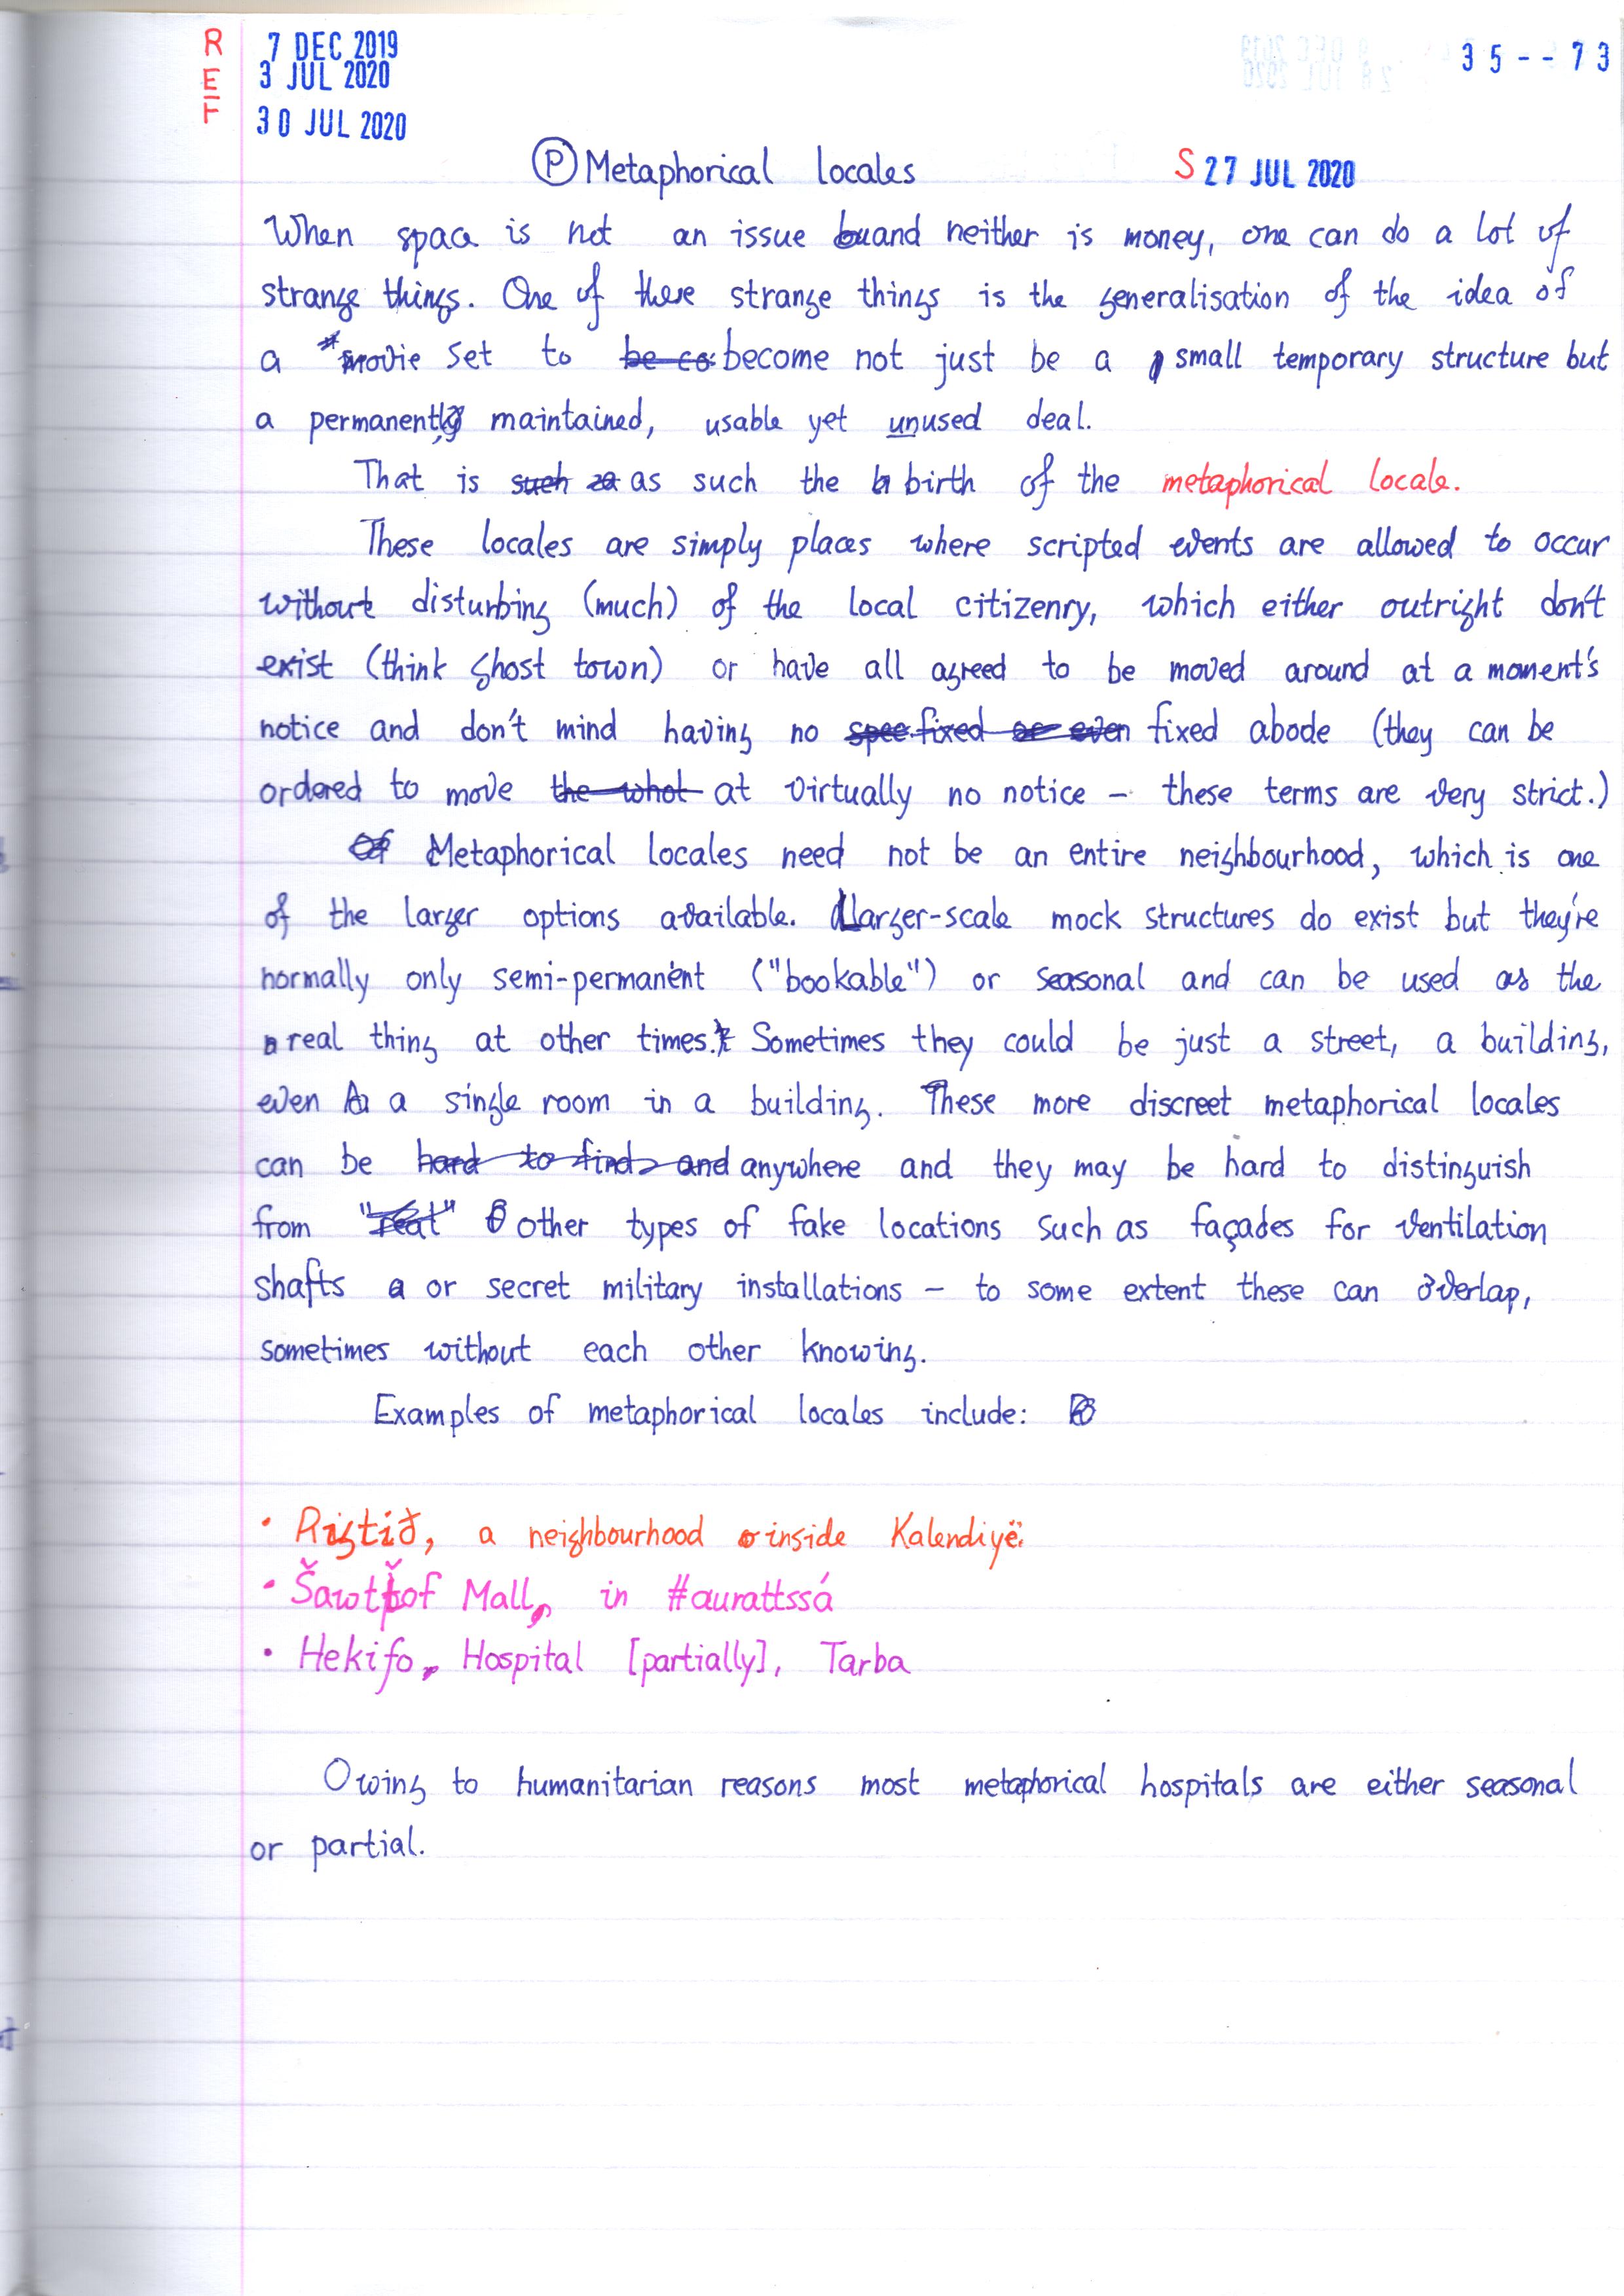 REF
7 DEC 2019
3 JUL 2020
30 JUL 2020
35--73
Ⓟ Metaphorical locales
S 27 JUL 2020
When space is not an issue and neither is money, one can do a lot of
strange things. One of these strange things is the generalisation of the idea of
a movie set to be co become not just be a small temporary structure but
a permanently maintained, usable yet unused deal.
That is such as such the birth of the metaphorical locale.
These locales are simply places where scripted events are allowed to occur
without disturbing (much) of the local citizenry, which either outright don't
exist (think ghost town) or have all agreed to be moved around at a moment's
notice and don't mind having no spec fixed or even fixed abode (they can be
ordered to move the whol at virtually no notice – these terms are very strict.)
Of Metaphorical locales need not be an entire neighbourhood, which is one
of the larger options available. Larger-scale mock structures do exist but they're
normally only semi-permanent ("bookable") or seasonal and can be used as the
real thing at other times. Sometimes they could be just a street, a building,
even a single room in a building. These more discreet metaphorical locales
can be hard to find and anywhere and they may be hard to distinguish
from "real" other types of fake locations such as façades for ventilation
shafts a or secret military installations – to some extent these can overlap,
sometimes without each other knowing.
Examples of metaphorical locales include:
• a neighbourhood inside Kalendiyë.
• Šawtþof Mall, in #aurattssá
• Hekifo Hospital [partially], Tarba
Owing to humanitarian reasons most metaphorical hospitals are either seasonal
or partial.